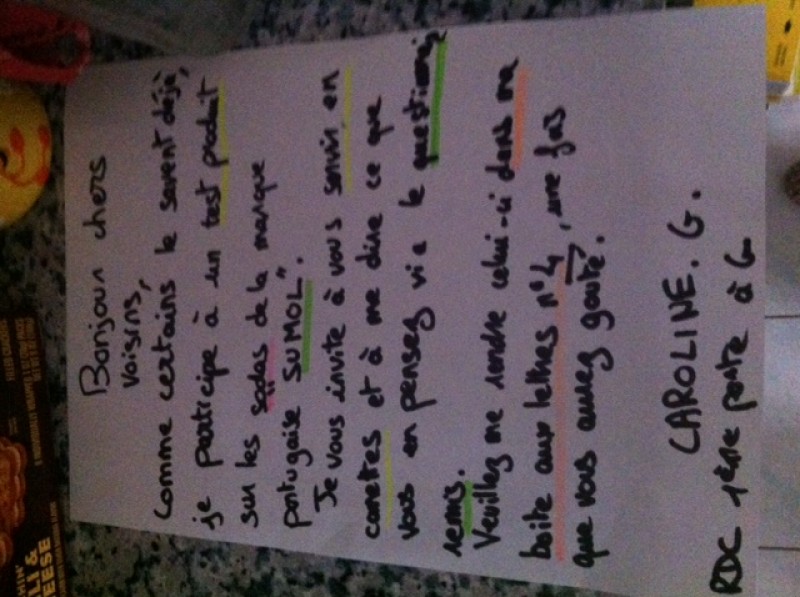 Bonjour chers
voisins,
Comme certains le savent déjà,
je participe à un test produit
sur les sodas de la marque
portugaise SUMOL".
Je vous invite à vous servir en
canettes et à me dire ce que
vous en pensez via le questionnaire
remis.
Veuillez me rendre celui-ci dans ma
boite aux lettres n°4, une fois
que vous aurez gouté.
CAROLINE. G.
RDC 1ère porte à G
LI &
EESE